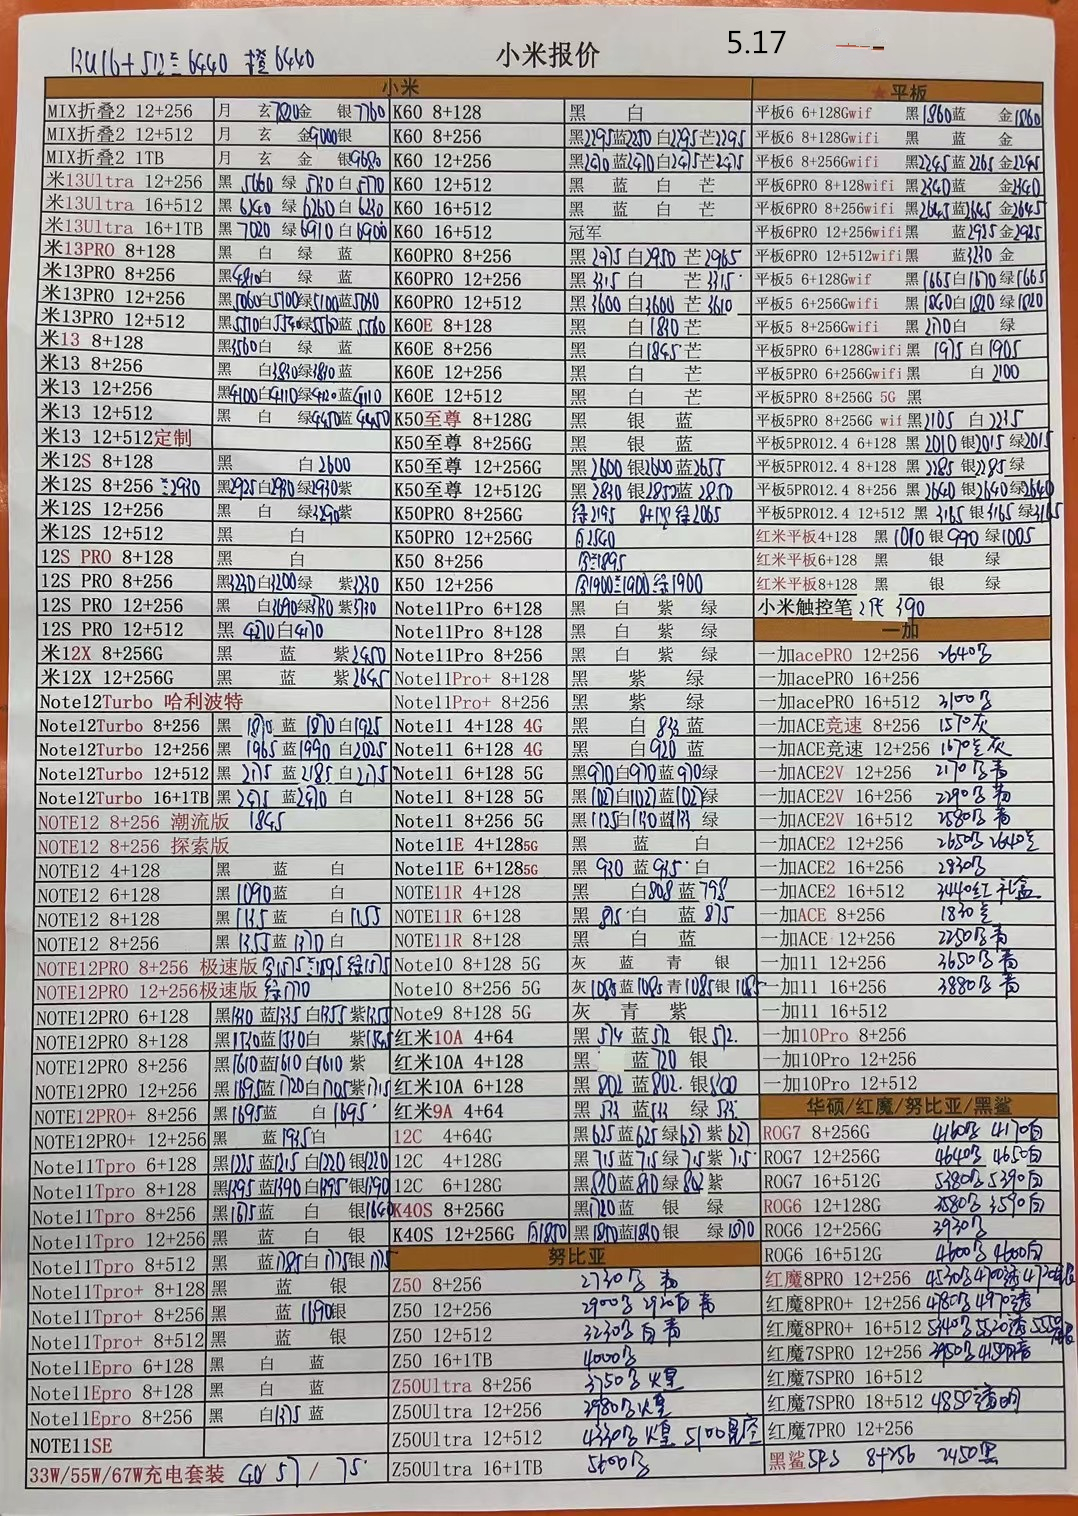 小米报价
5.17
13U 16+512 兰6440 橙6440
小米
MIX折叠2 12+256 月 玄7820金 银7760
MIX折叠2 12+512 月 玄 金9000银
MIX折叠2 1TB 月 玄 金 银9680
米13Ultra 12+256 黑 5660 绿 5730 白 5770
米13Ultra 16+512 黑 6240 绿 6260 白 6230
米13Ultra 16+1TB 黑 7020 绿6910 白6900
米13PRO 8+128 黑 白 绿 蓝
米13PRO 8+256 黑4810白 绿 蓝
米13PRO 12+256 黑5060白5100绿5100蓝5030
米13PRO 12+512 黑5510白5540绿5560蓝5560
米13 8+128 黑3560白 绿 蓝
米13 8+256 黑 白3830绿3810蓝
米13 12+256 黑4100白4110绿4120蓝4110
米13 12+512 黑 白 绿4450蓝4450
米13 12+512定制
米12S 8+128 黑 白2600
米12S 8+256 兰2930 黑2925白2930绿2930紫
米12S 12+256 黑 白 绿3290紫
米12S 12+512 黑 白
12S PRO 8+128 黑 白
12S PRO 8+256 黑3230白3200绿 紫3230
12S PRO 12+256 黑 白3690绿3730紫3730
12S PRO 12+512 黑 4270白4170
米12X 8+256G 黑 蓝 紫2450
米12X 12+256G 黑 蓝 紫2645
Note12Turbo 哈利波特
Note12Turbo 8+256 黑 1870 蓝 1870白1925
Note12Turbo 12+256 黑 1965 蓝1990 白2025
Note12Turbo 12+512 黑 2175 蓝2185 白2175
Note12Turbo 16+1TB 黑 2475 蓝2470 白
NOTE12 8+256 潮流版 1845
NOTE12 8+256 探索版
NOTE12 4+128 黑 蓝 白
NOTE12 6+128 黑1090蓝 白
NOTE12 8+128 黑1135蓝 白1155
NOTE12 8+256 黑1355蓝1370 白
NOTE12PRO 8+256 极速版 白1575兰1595绿1575
NOTE12PRO 12+256极速版 绿1770
NOTE12PRO 6+128 黑1330 蓝1335 白1355 紫1355
NOTE12PRO 8+128 黑1530蓝1530白 紫1545
NOTE12PRO 8+256 黑1610蓝1610白1610 紫
NOTE12PRO 12+256 黑1695蓝1720白1705紫1715
NOTE12PRO+ 8+256 黑1695蓝 白1695
NOTE12PRO+ 12+256 黑 蓝1935白
Note11Tpro 6+128 黑1225蓝1215白1220银1220
Note11Tpro 8+128 黑1395蓝1390白1395银1390
Note11Tpro 8+256 黑1675蓝 白 银1640
Note11Tpro 12+256 黑 蓝 白 银
Note11Tpro 8+512 黑 蓝1785白1775银1775
Note11Tpro+ 8+128 黑 蓝 银
Note11Tpro+ 8+256 黑 蓝1190银
Note11Tpro+ 8+512 黑 蓝 银
Note11Epro 6+128 黑 白 蓝
Note11Epro 8+128 黑 白 蓝
Note11Epro 8+256 黑 白1375蓝
NOTE11SE
33W/55W/67W充电套装 40/ 57 / 75
K60 8+128 黑 白
K60 8+256 黑2295蓝2250白2295芒2295
K60 12+256 黑2410蓝2410白2415芒2415
K60 12+512 黑 蓝 白 芒
K60 16+512 黑 蓝 白 芒
K60 16+512 冠军
K60PRO 8+256 黑 2975 白2950 芒2965
K60PRO 12+256 黑 3315 白 芒3315
K60PRO 12+512 黑 3600 白3600 芒3610
K60E 8+128 黑 白1830芒
K60E 8+256 黑 白1845芒
K60E 12+256 黑 白 芒
K60E 12+512 黑 白 芒
K50至尊 8+128G 黑 银 蓝
K50至尊 8+256G 黑 银 蓝
K50至尊 12+256G 黑 2600 银2600蓝2655
K50至尊 12+512G 黑 2830 银2855蓝 2850
K50PRO 8+256G 绿2195 8+128绿2065
K50PRO 12+256G 白2540
K50 8+256 白兰1895
K50 12+256 白1900兰1900绿1900
Note11Pro 6+128 黑 白 紫 绿
Note11Pro 8+128 黑 白 紫 绿
Note11Pro 8+256 黑 白 紫 绿
Note11Pro+ 8+128 黑 紫 绿
Note11Pro+ 8+256 黑 紫 绿
Note11 4+128 4G 黑 白 833 蓝
Note11 6+128 4G 黑 白920 蓝
Note11 6+128 5G 黑970白970蓝970绿
Note11 8+128 5G 黑1027白1027蓝1027绿
Note11 8+256 5G 黑1125白1130蓝1133 绿
Note11E 4+1285G 黑 蓝 白
Note11E 6+1285G 黑 930 蓝 935 白
NOTE11R 4+128 黑 白808 蓝 798
NOTE11R 6+128 黑 815 白 蓝 875
NOTE11R 8+128 黑 白 蓝
Note10 8+128 5G 灰 蓝 青 银
Note10 8+256 5G 灰1085蓝1085青1085银1085
Note9 8+128 5G 灰 青 紫
红米10A 4+64 黑 574 蓝572 银572
红米10A 4+128 黑 蓝720 银
红米10A 6+128 黑 802 蓝802 银800
红米9A 4+64 黑 533 蓝533 绿 533
12C 4+64G 黑625蓝625绿627紫627
12C 4+128G 黑 715蓝715绿715紫715
12C 6+128G 黑810蓝810绿802紫
K40S 8+256G 黑1720蓝 银 绿
K40S 12+256G 白1850 黑1850蓝1830银 绿1870
努比亚
Z50 8+256 2730黑 青
Z50 12+256 2900黑 2920白 青
Z50 12+512 3230黑白青
Z50 16+1TB 4000黑
Z50Ultra 8+256 3750黑 火星
Z50Ultra 12+256 3980黑火星
Z50Ultra 12+512 4330黑 火星 5100星空
Z50Ultra 16+1TB 5600黑
★平板
平板6 6+128Gwif 黑1860蓝 金1860
平板6 8+128Gwifi 黑 蓝 金
平板6 8+256Gwifi 黑2245蓝2265金2245
平板6PRO 8+128wifi 黑2340蓝 金2340
平板6PRO 8+256wifi 黑2645蓝2645 金2645
平板6PRO 12+256wifi黑 蓝2935金2925
平板6PRO 12+512wifi黑 蓝3230金
平板5 6+128Gwif 黑1665白1670绿1665
平板5 6+256Gwifi 黑1840白1820绿1820
平板5 8+256Gwifi 黑2170白 绿
平板5PRO 6+128Gwifi 黑 1975 白1905
平板5PRO 6+256Gwifi 黑 白2100
平板5PRO 8+256G 5G 黑
平板5PRO 8+256G wif 黑2105 白2235
平板5PRO12.4 6+128 黑2010银2015绿2015
平板5PRO12.4 8+128 黑2185银2185绿
平板5PRO12.4 8+256 黑2640银2640绿2640
平板5PRO12.4 12+512 黑 3165 银3165 绿3165
红米平板4+128 黑 1010银990 绿1005
红米平板6+128 黑 银 绿
红米平板8+128 黑 银 绿
小米触控笔 2代 390
一加
一加acePRO 12+256 2640黑
一加acePRO 16+256
一加acePRO 16+512 3100黑
一加ACE竞速 8+256 1570灰
一加ACE竞速 12+256 1670兰灰
一加ACE2V 12+256 2170黑青
一加ACE2V 16+256 2290黑青
一加ACE2V 16+512 2580黑青
一加ACE2 12+256 2650黑2640兰
一加ACE2 16+256 2830黑
一加ACE2 16+512 3440红 礼盒
一加ACE 8+256 1830兰
一加ACE 12+256 2250黑青
一加11 12+256 3650黑青
一加11 16+256 3880黑青
一加11 16+512
一加10Pro 8+256
一加10Pro 12+256
一加10Pro 12+512
华硕/红魔/努比亚/黑鲨
ROG7 8+256G 4160黑 4170白
ROG7 12+256G 4640黑 4650白
ROG7 16+512G 5380黑5390白
ROG6 12+128G 3580黑 3590白
ROG6 12+256G 3930黑
ROG6 16+512G 4600黑 4600白
红魔8PRO 12+256 4530黑4700透
红魔8PRO+ 12+256 4780黑4970透
红魔8PRO+ 16+512 5340黑5520透5550
红魔7SPRO 12+256 3950黑4150透
红魔7SPRO 16+512
红魔7SPRO 18+512 4850透明
红魔7PRO 12+256
黑鲨5RS 8+256 2450黑